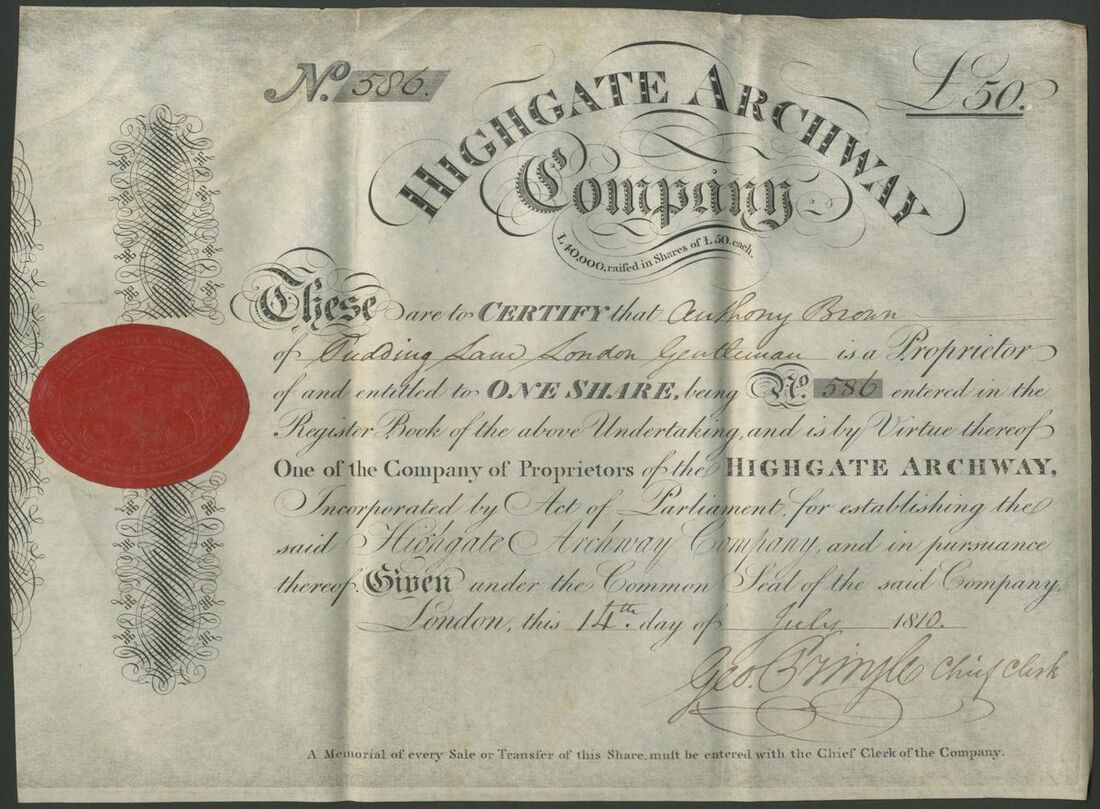 No. 586.
£50.
HIGHGATE ARCHWAY
Company
L 40,000, raiſed in Shares of L 50. each.
These are to CERTIFY that Anthony Brown
of Pudding Lane London Gentleman is a Proprietor
of and entitled to ONE SHARE, being No. 586 entered in the
Register Book of the above Undertaking, and is by Virtue thereof
One of the Company of Proprietors of the HIGHGATE ARCHWAY,
Incorporated by Act of Parliament, for establishing the
said Highgate Archway Company, and in pursuance
thereof. Given under the Common Seal of the said Company.
London, this 14th. day of July 1810.
Geo. Pringle Chief Clerk
A Memorial of every Sale or Transfer of this Share, muſt be entered with the Chief Clerk of the Company.